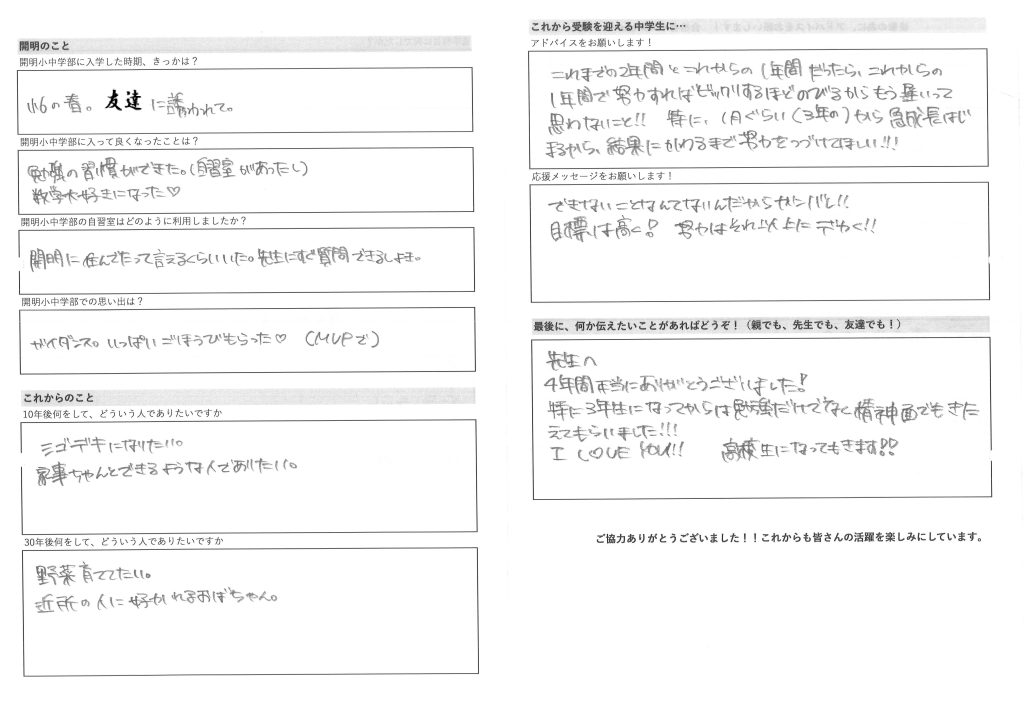 開明のこと
開明小中学部に入学した時期、きっかけは？
小6の春。友達に誘われて。
開明小中学部に入って良くなったことは？
勉強の習慣ができた。(自習室があったし)
数学大好きになった♡
開明小中学部の自習室はどのように利用しましたか？
開明に住んでたって言えるくらいいた。先生にすぐ質問できるしよき。
開明小中学部での思い出は？
ガイダンス。いっぱいごほうびもらった♡ (MVPで)
これからのこと
10年後何をして、どういう人でありたいですか
ミゴデキになりたい。
家事ちゃんとできるような人でありたい。
30年後何をして、どういう人でありたいですか
野菜育ててたい。
近所の人に好かれるおばちゃん。
これから受験を迎える中学生に…
アドバイスをお願いします！
これまでの2年間とこれからの1年間だったら、これからの
1年間で努力すればビックリするほどのびるからもう遅いって
思わないこと!! 特に、1月ぐらい(3年の)から急成長はじ
まるから、結果にかわるまで努力をつづけてほしい!!!
応援メッセージをお願いします！
できないことなんてないんだからガンバレ!!
目標は高く! 努力はそれ以上にでかく!!
最後に、何か伝えたいことがあればどうぞ！（親でも、先生でも、友達でも！）
先生へ
4年間本当にありがとうございました!
特に3年生になってからは勉強だけでなく精神面でもきた
えてもらいました!!!
I LOVE YOU!! 高校生になってもきます!!
ご協力ありがとうございました！！これからも皆さんの活躍を楽しみにしています。